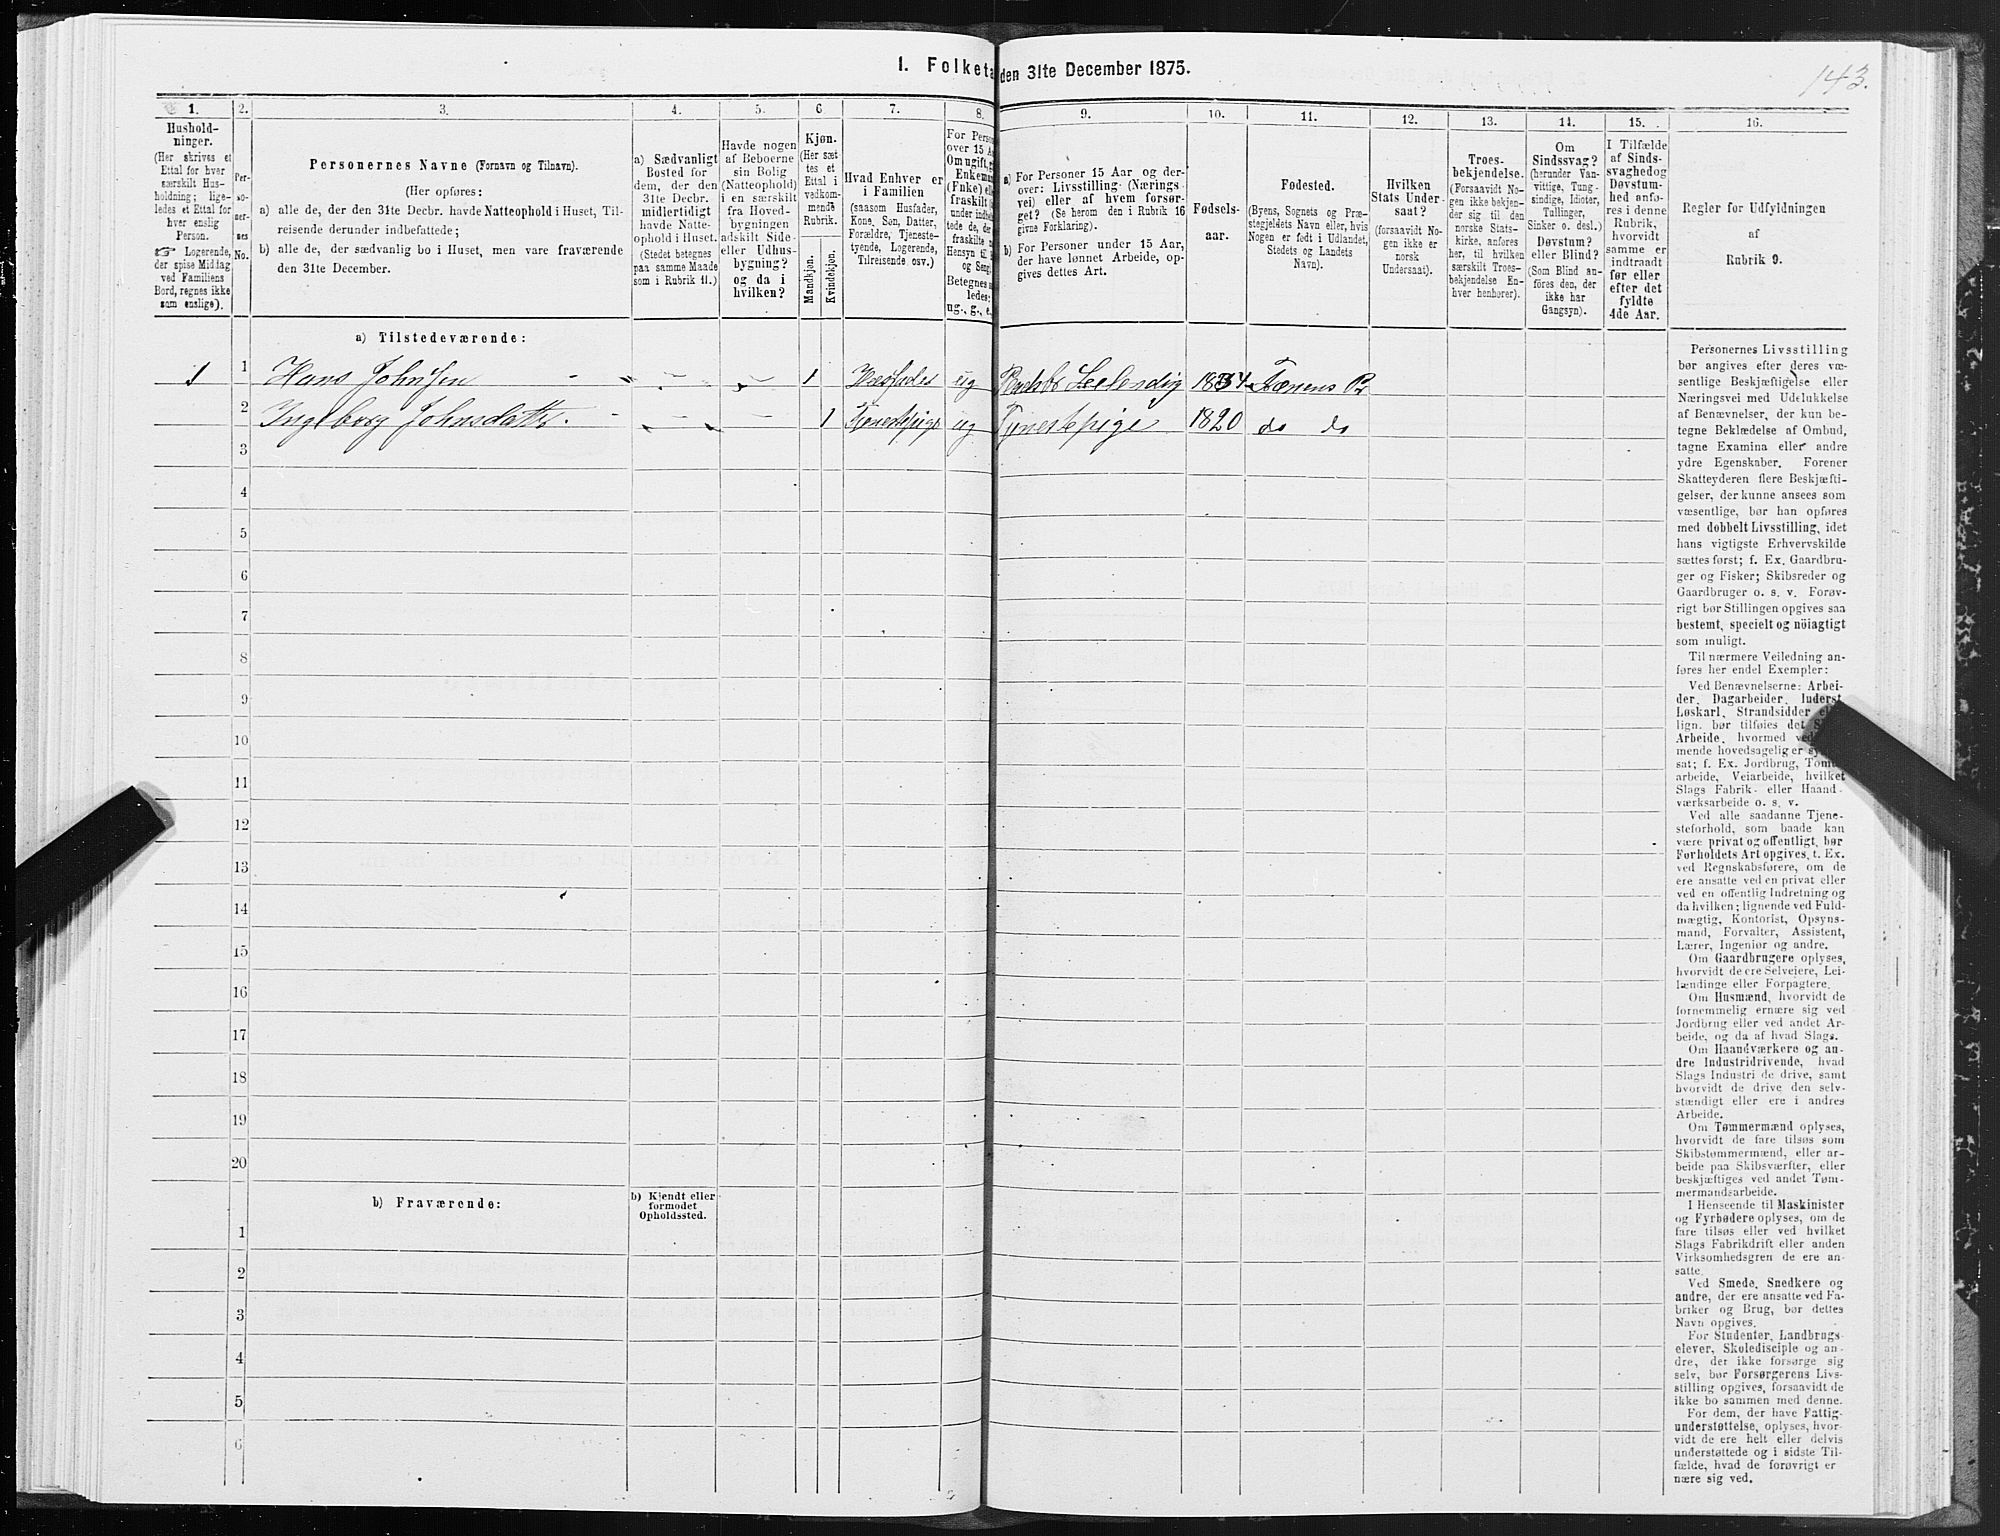 1. Folketa den 31te December 1875.
143.
1.
2.
3.
4.
5.
6
7.
8.
9.
10.
11.
12.
13.
14.
15.
16.
Hushold-
ninger.
(Her skrives et
Ettal for hver
særskilt Hus-
holdning; lige-
ledes et Ettal for
hver enslig
Person.
☞ Logerende,
der spise Middag
ved Familiens
Bord, regnes ikke
som enslige).
Per-
so-
ner-
nes
No.
Personernes Navne (Fornavn og Tilnavn).
(Her opføres:
a) alle de, der den 31te Decbr. havde Natteophold i Huset, Til-
reisende derunder indbefattede;
b) alle de, der sædvanlig bo i Huset, men vare fraværende
den 31te December.
a) Sædvanligt
Bosted for
dem, der den
31te Decbr.
midlertidigt
havde Natte-
ophold i Huset.
(Stedet betegnes
paa samme Maade
som i Rubrik 11.)
Havde nogen
af Beboerne
sin Bolig
(Natteophold)
i en særskilt
fra Hoved-
bygningen
adskilt Side-
eller Udhus-
bygning?
og da i
hvilken?
Kjøn.
(Her sæt-
tes et
Ettal i
vedkom-
mende
Rubrik.
Mandkjøn.
Kvindekjøn.
Hvad Enhver er
i Familien
(saasom Husfader,
Kone, Søn, Datter,
Forældre, Tjeneste-
tyende, Logerende,
Tilreisende osv.)
For Perso
over 15 A
Om ugift, g
Enkeman
(Enke) ell
fraskilt
under indt
tede de, der
fraskilte
Hensyn til
og Seng.
Betegnes
ledes:
ug., g., e.
a) For Personer 15 Aar og der-
over: Livsstilling (Nærings-
vei) eller af hvem forsør-
get? (Se herom den i Rubrik 16
givne Forklaring).
b) For Personer under 15 Aar,
der have lønnet Arbeide, op-
gives dettes Art.
Fødsels-
aar.
Fødested.
(Byens, Sognets og Præ-
stegjeldets Navn eller, hvis
Nogen er født i Udlandet,
Stedets og Landets
Navn).
Hvilken
Stats Under-
saat?
(forsaavidt No-
gen ikke er
norsk
Undersaat).
Troes-
bekjendelse.
(Forsaavidt No-
gen ikke bekjen-
der sig til den
norske Stats-
kirke, anføres
her, til hvilken
særskilt Troes-
bekjendelse En-
hver henhører).
Om
Sindssvag?
(herunder Van-
vittige, Tung-
sindige, Idioter,
Tullinger,
Sinker o. desl.)
Døvstum?
eller Blind?
(Som Blind an-
føres den, der
ikke har
Gangsyn).
I Tilfælde
af Sinds-
svaghed og
Døvstum-
hed anfø-
res i denne
Rubrik,
hvorvidt
samme er
indtraadt
før eller
efter det
fyldte
4de Aar.
Regler for Udfyldningen
af
Rubrik 9.
a) Tilstedeværende:
1 1 Hans Johnsen - - - 1 Husfader ug Leilendig 1834
2 Ingeborg Johnsdatter - - - 1 Tjenestepige ug Tjenestepige 1820 do do
3
4
5
6
7
8
9
10
11
12
13
14
15
16
17
18
19
20
b) Fraværende:
b) Kjendt eller
formodet
Opholdssted.
1
2
3
4
5
6
Personernes Livsstilling
bør angives efter deres væ-
sentlige Beskjæftigelse eller
Næringsvei med Udelukkelse
af Benævnelser, der kun be-
tegne Beklædelse af Ombud,
tagne Examina eller andre
ydre Egenskaber. Forener
Skatteyderen flere Beskjæfti-
gelser, der kunne ansees som
væsentlige, bør han opføres
med dobbelt Livsstilling, idet
hans vigtigste Erhvervskilde
sættes først; f. Ex. Gaardbru-
ger og Fisker; Skibsreder og
Gaardbruger o. s. v. Forøv-
rigt bør Stillingen opgives saa
bestemt, specielt og nöiagtigt
som muligt.
Til nærmere Veiledning an-
føres her endel Exempler:
Ved Benævnelserne: Arbei-
der, Dagarbeider, Inderst,
Løskarl, Strandsidder
lign. bør tilføies det
Arbeide, hvormed
mende hovedsagelig er
sat; f. Ex. Jordbrug,
arbeide, Veiarbeide, hvilket
Slags Fabrik- eller Haand-
værksarbeide o. s. v.
Ved alle saadanne Tjene-
steforhold, som baade kan
være privat og offentligt, bør
Forholdets Art opgives, t. Ex.
ved Regnskabsførere, om de
ere ansatte ved en privat eller
ved en offentlig Indretning og
da hvilken; lignende ved Fuld-
mægtig, Kontorist, Opsyns-
mand, Forvalter, Assistent,
Lærer, Ingeniør og andre.
Om Gaardbrugere oplyses,
hvorvidt de ere Selveiere, Lei-
lændinge eller Forpagtere.
Om Husmænd, hvorvidt de
fornemmelig ernære sig ved
Jordbrug eller ved andet Ar-
beide, og da af hvad Slags.
Om Haandværkere og an-
dre Industridrivende, hvad
Slags Industri de drive, samt
hvorvidt de drive den selv-
stændigt eller ere i andres
Arbeide.
Om Tømmermænd oplyses,
hvorvidt de fare tilsøs som
Skibstømmermænd, eller ar-
beide paa Skibsværfter, eller
beskjæftiges ved andet Tøm-
mermandsarbeide.
I Henseende til Maskinister
og Fyrbødere oplyses, om de
fare tilsøs eller ved hvilket
Slags Fabrikdrift eller anden
Virksomhedsgren de ere an-
satte.
Ved Smede, Snedkere og
andre, der ere ansatte ved Fa-
briker og Brug, bør dettes
Navn opgives.
For Studenter, Landbrugs-
elever, Skoledisciple og an-
dre, der ikke forsørge sig
selv, bør Forsørgerens Livs-
stilling opgives, forsaavidt de
ikke bo sammen med denne.
For dem, der have Fattig-
understøttelse, oplyses, hvor-
vidt de ere helt eller delvis
understøttede og i sidste Til-
fælde, hvad de forøvrigt er
nære sig ved.